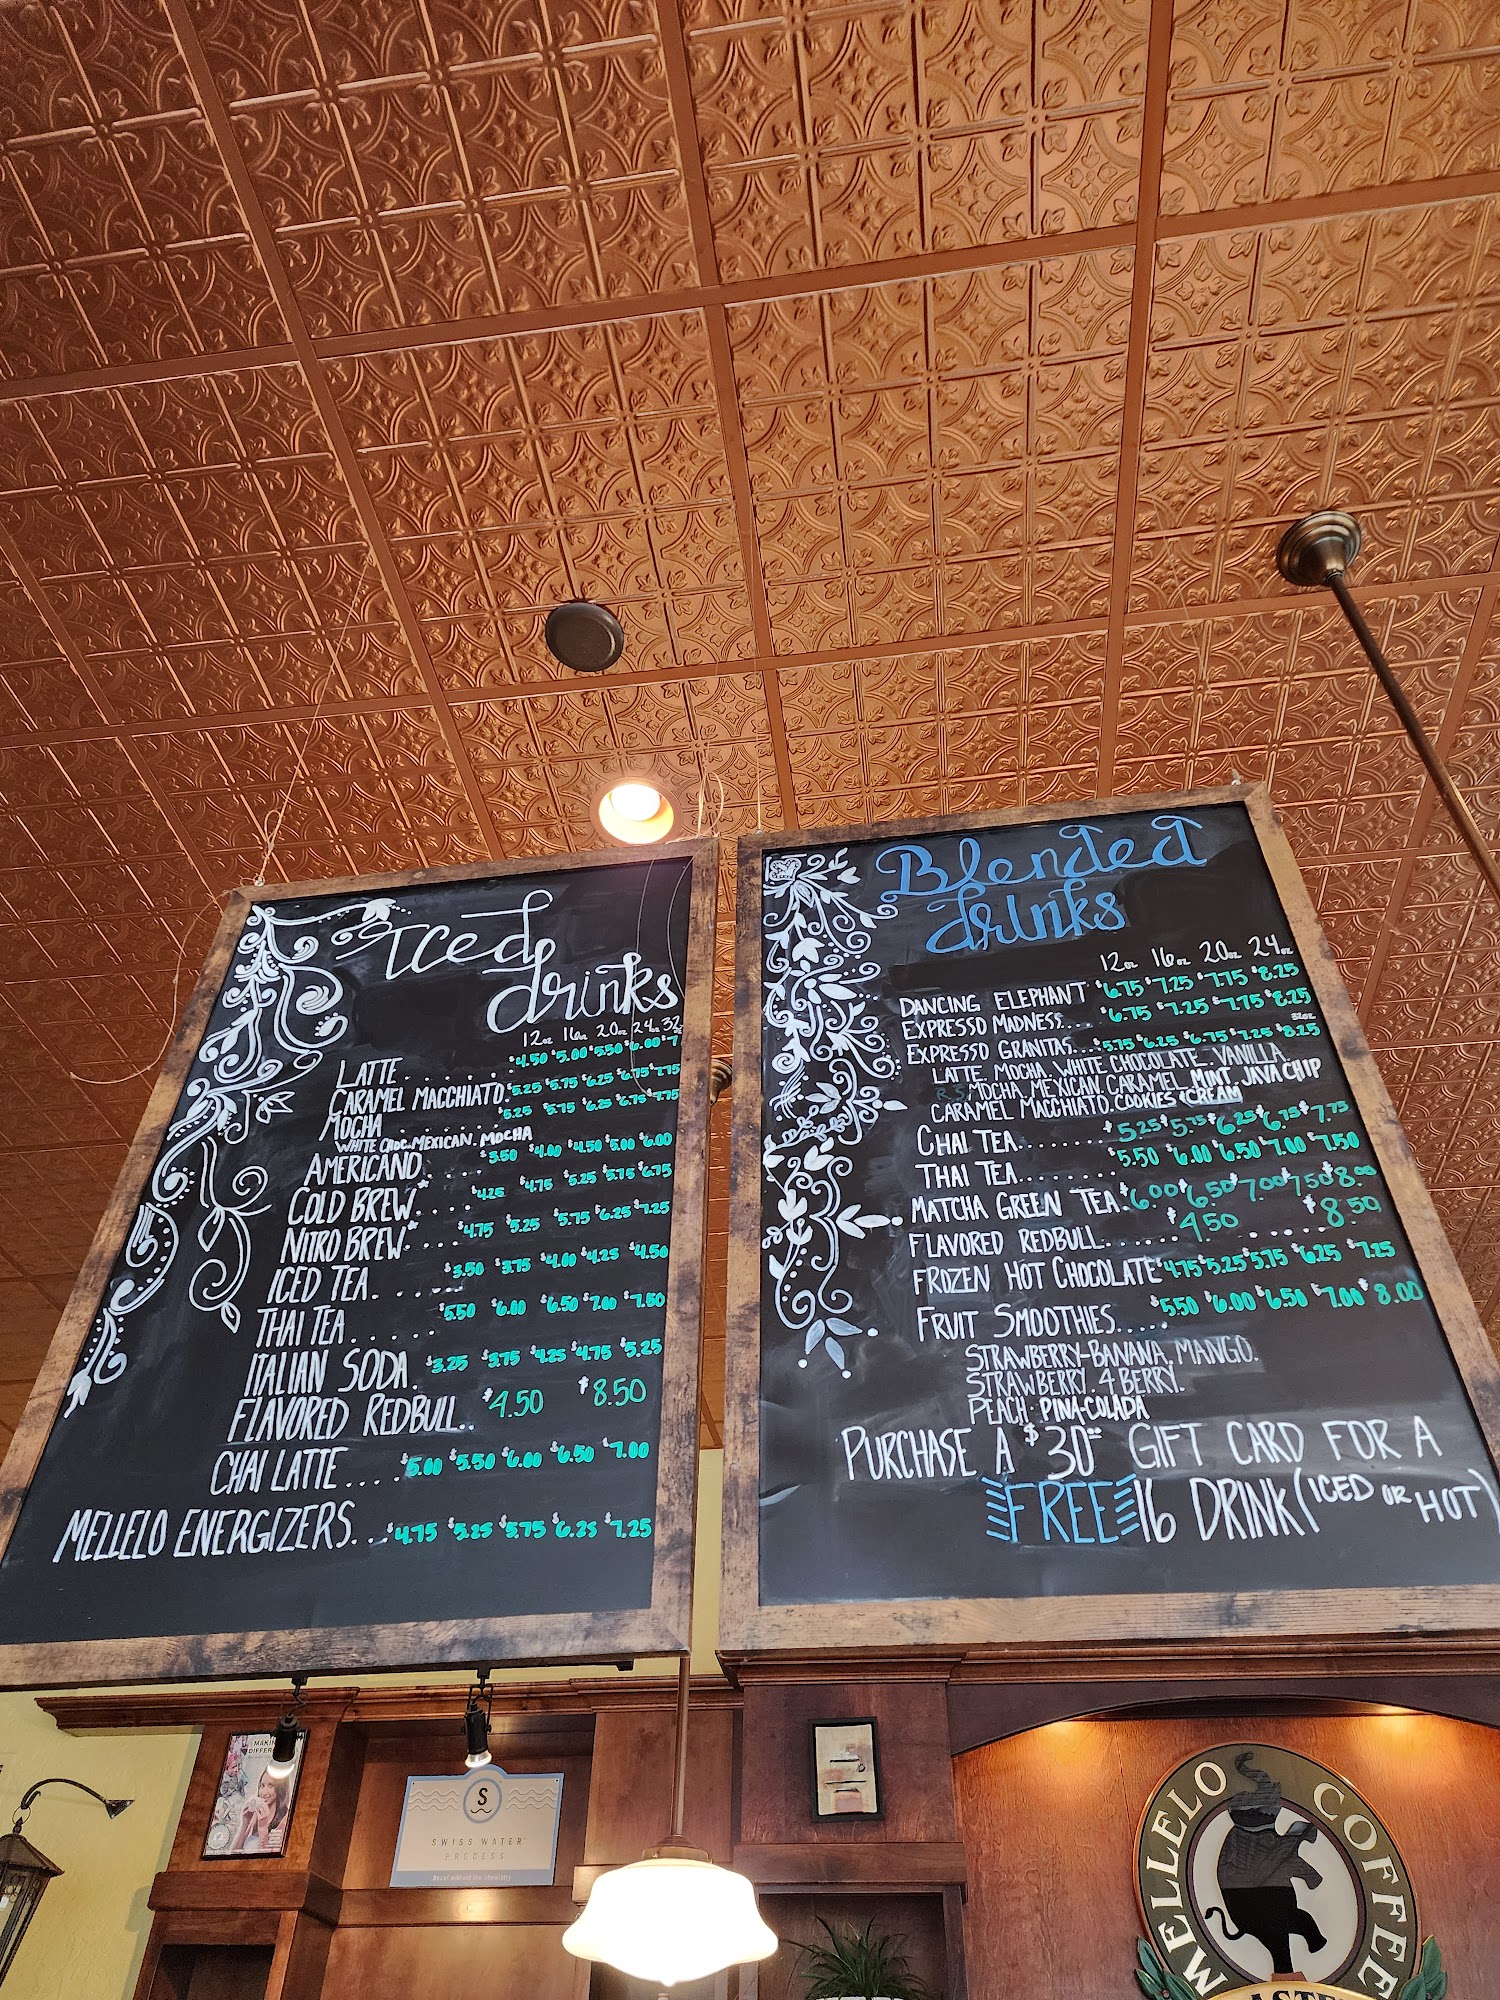 Iced
drinks
12oz 16oz 20oz 24oz 32oz
LATTE....... $4.50 $5.00 $5.50 $6.00 $7
CARAMEL MACCHIATO. $5.25 $5.75 $6.25 $6.75 $7.75
MOCHA........ $5.25 $5.75 $6.25 $6.75 $7.75
WHITE CHOC. MEXICAN. MOCHA
AMERICANO..... $3.50 $4.00 $4.50 $5.00 $6.00
COLD BREW*.... $4.25 $4.75 $5.25 $5.75 $6.75
NITRO BREW*.... $4.75 $5.25 $5.75 $6.25 $7.25
ICED TEA...... $3.50 $3.75 $4.00 $4.25 $4.50
THAI TEA...... $5.50 $6.00 $6.50 $7.00 $7.50
ITALIAN SODA. $3.25 $3.75 $4.25 $4.75 $5.25
FLAVORED REDBULL.. $4.50 $8.50
CHAI LATTE.... $5.00 $5.50 $6.00 $6.50 $7.00
MELLELO ENERGIZERS... $4.75 $5.25 $5.75 $6.25 $7.25
Blended
drinks
12oz 16oz 20oz 24oz
DANCING ELEPHANT $6.75 $7.25 $7.75 $8.25
EXPRESSO MADNESS.... $6.75 $7.25 $7.75 $8.25
32oz
EXPRESSO GRANITAS.... $5.75 $6.25 $6.75 $7.25 $8.25
LATTE. MOCHA. WHITE CHOCOLATE. VANILLA.
R.S. MOCHA. MEXICAN. CARAMEL. MINT. JAVA CHIP
CARAMEL MACCHIATO. COOKIES & CREAM
CHAI TEA........ $5.25 $5.75 $6.25 $6.75 $7.75
THAI TEA........ $5.50 $6.00 $6.50 $7.00 $7.50
MATCHA GREEN TEA. $6.00 $6.50 $7.00 $7.50 $8.00
FLAVORED REDBULL...... $4.50 ...... $8.50
FROZEN HOT CHOCOLATE $4.75 $5.25 $5.75 $6.25 $7.25
FRUIT SMOOTHIES..... $5.50 $6.00 $6.50 $7.00 $8.00
STRAWBERRY-BANANA. MANGO.
STRAWBERRY. 4 BERRY.
PEACH. PINA-COLADA
PURCHASE A $30 GIFT CARD FOR A
FREE 16 DRINK (ICED OR HOT)
S
SWISS WATER
PROCESS
Decaf without the chemistry
MELLELO COFFEE